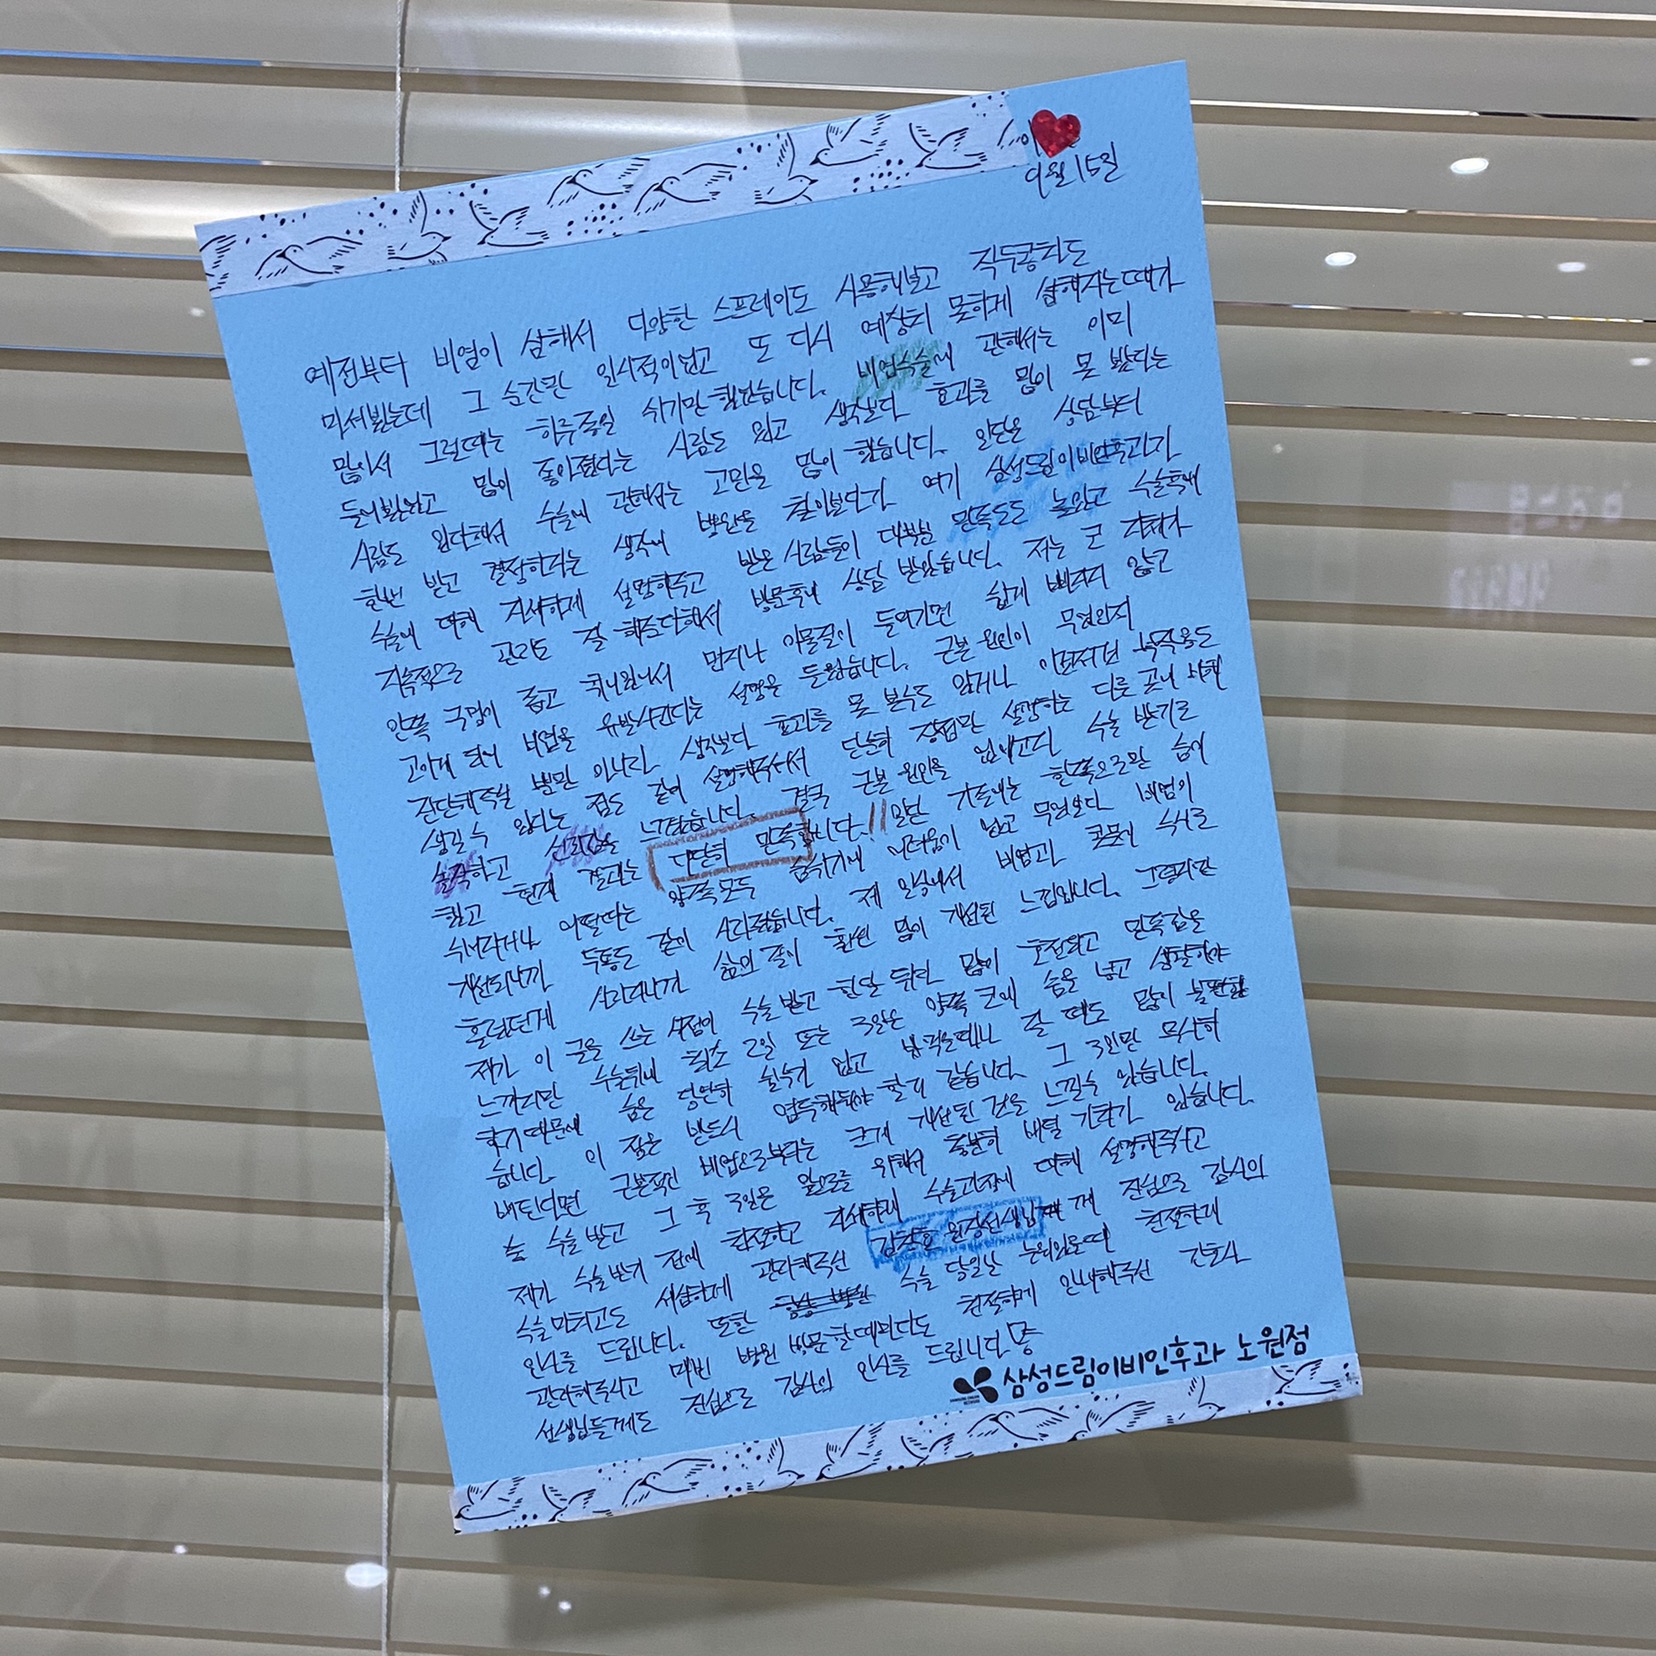 9월 15일
예전부터 비염이 심해서 다양한 스프레이도 사용해보고 직수공치도
마셔봤는데 그 순간만 일시적이었고 또 다시 예상치 못하게 심해지는때가
많아서 그럴때는 하루종일 쉬기만 했었습니다. 비염수술에 관해서는 이미
들어봤었고 많이 좋아졌다는 사람도 있고 생각보다 효과를 많이 못 봤다는
사람도 있다해서 수술에 관해서는 고민을 많이 했습니다. 일단은 상담부터
한번 받고 결정하자는 생각에 병원을 찾아보다가 여기 삼성드림이비인후과가
수술에 대해 자세하게 설명해주고 받은 사람들이 대부분 만족도도 높았고 수술후에
지속적으로 관리도 잘 해준다해서 방문후에 상담 받았습니다. 저는 코 자체가
안쪽 구멍이 좁고 콧내원에서 먼지나 이물질이 들어가면 쉽게 빠지지 않고
고이게 되어 비염을 유발시킨다는 설명을 들었습니다. 근본 원인이 무엇인지
진단해주실 뿐만 아니라 생각보다 효과를 못 볼수도 있거나 이러저런 부작용도
생길 수 있다는 점도 같이 설명해주셔서 단순히 장점만 설명하는 다른 곳에 비해
솔직하고 신뢰감을 느꼈습니다. 결국 근본 원인을 없애고자 수술 받기로
했고 현재 결과는 대단히 만족합니다!! 일반 기존에는 한쪽으로만 숨이
쉬어지거나 어떨때는 양쪽모두 숨쉬기에 어려움이 있고 무엇보다 비염이
개선되니까 두통도 같이 사라졌습니다. 제 일상에서 비염과 콧물이 수시로
흘렀던게 사라지니까 삶의 질이 훨씬 많이 개선된 느낌입니다. 그렇지만
제가 이 글을 쓰는 시점이 수술 받고 한달 뒤라 많이 호전되고 만족감을
느끼지만 수술뒤에 최초 2일 또는 3일은 양쪽 코에 솜을 넣고 생활해야
하기때문에 숨은 당연히 쉴수가 없고 밥먹을때나 잘 때도 많이 불편
습니다. 이 점은 반드시 염두해둬야 할거 같습니다. 그 3일만 무사히
버틴다면 근본적인 비염으로부터는 크게 개선된 것을 느낄수 있습니다.
수술받고 그 후 3일은 일으로를 위해서 충분히 버틸 가치가 있습니다.
제가 수술받기 전에 친절하고 자세하게 수술과정에 대해 설명해주시고
수술 마치고도 세심하게 관리해주신 김창호 원장선생님께 진심으로 감사의
인사를 드립니다. 또한 수술 당일날 누워있을때 친절하게
관리해주시고 매번 병원 방문할때마다도 친절하게 안내해주신 간호사
선생님들께도 진심으로 감사의 인사를 드립니다.
삼성드림이비인후과 노원점